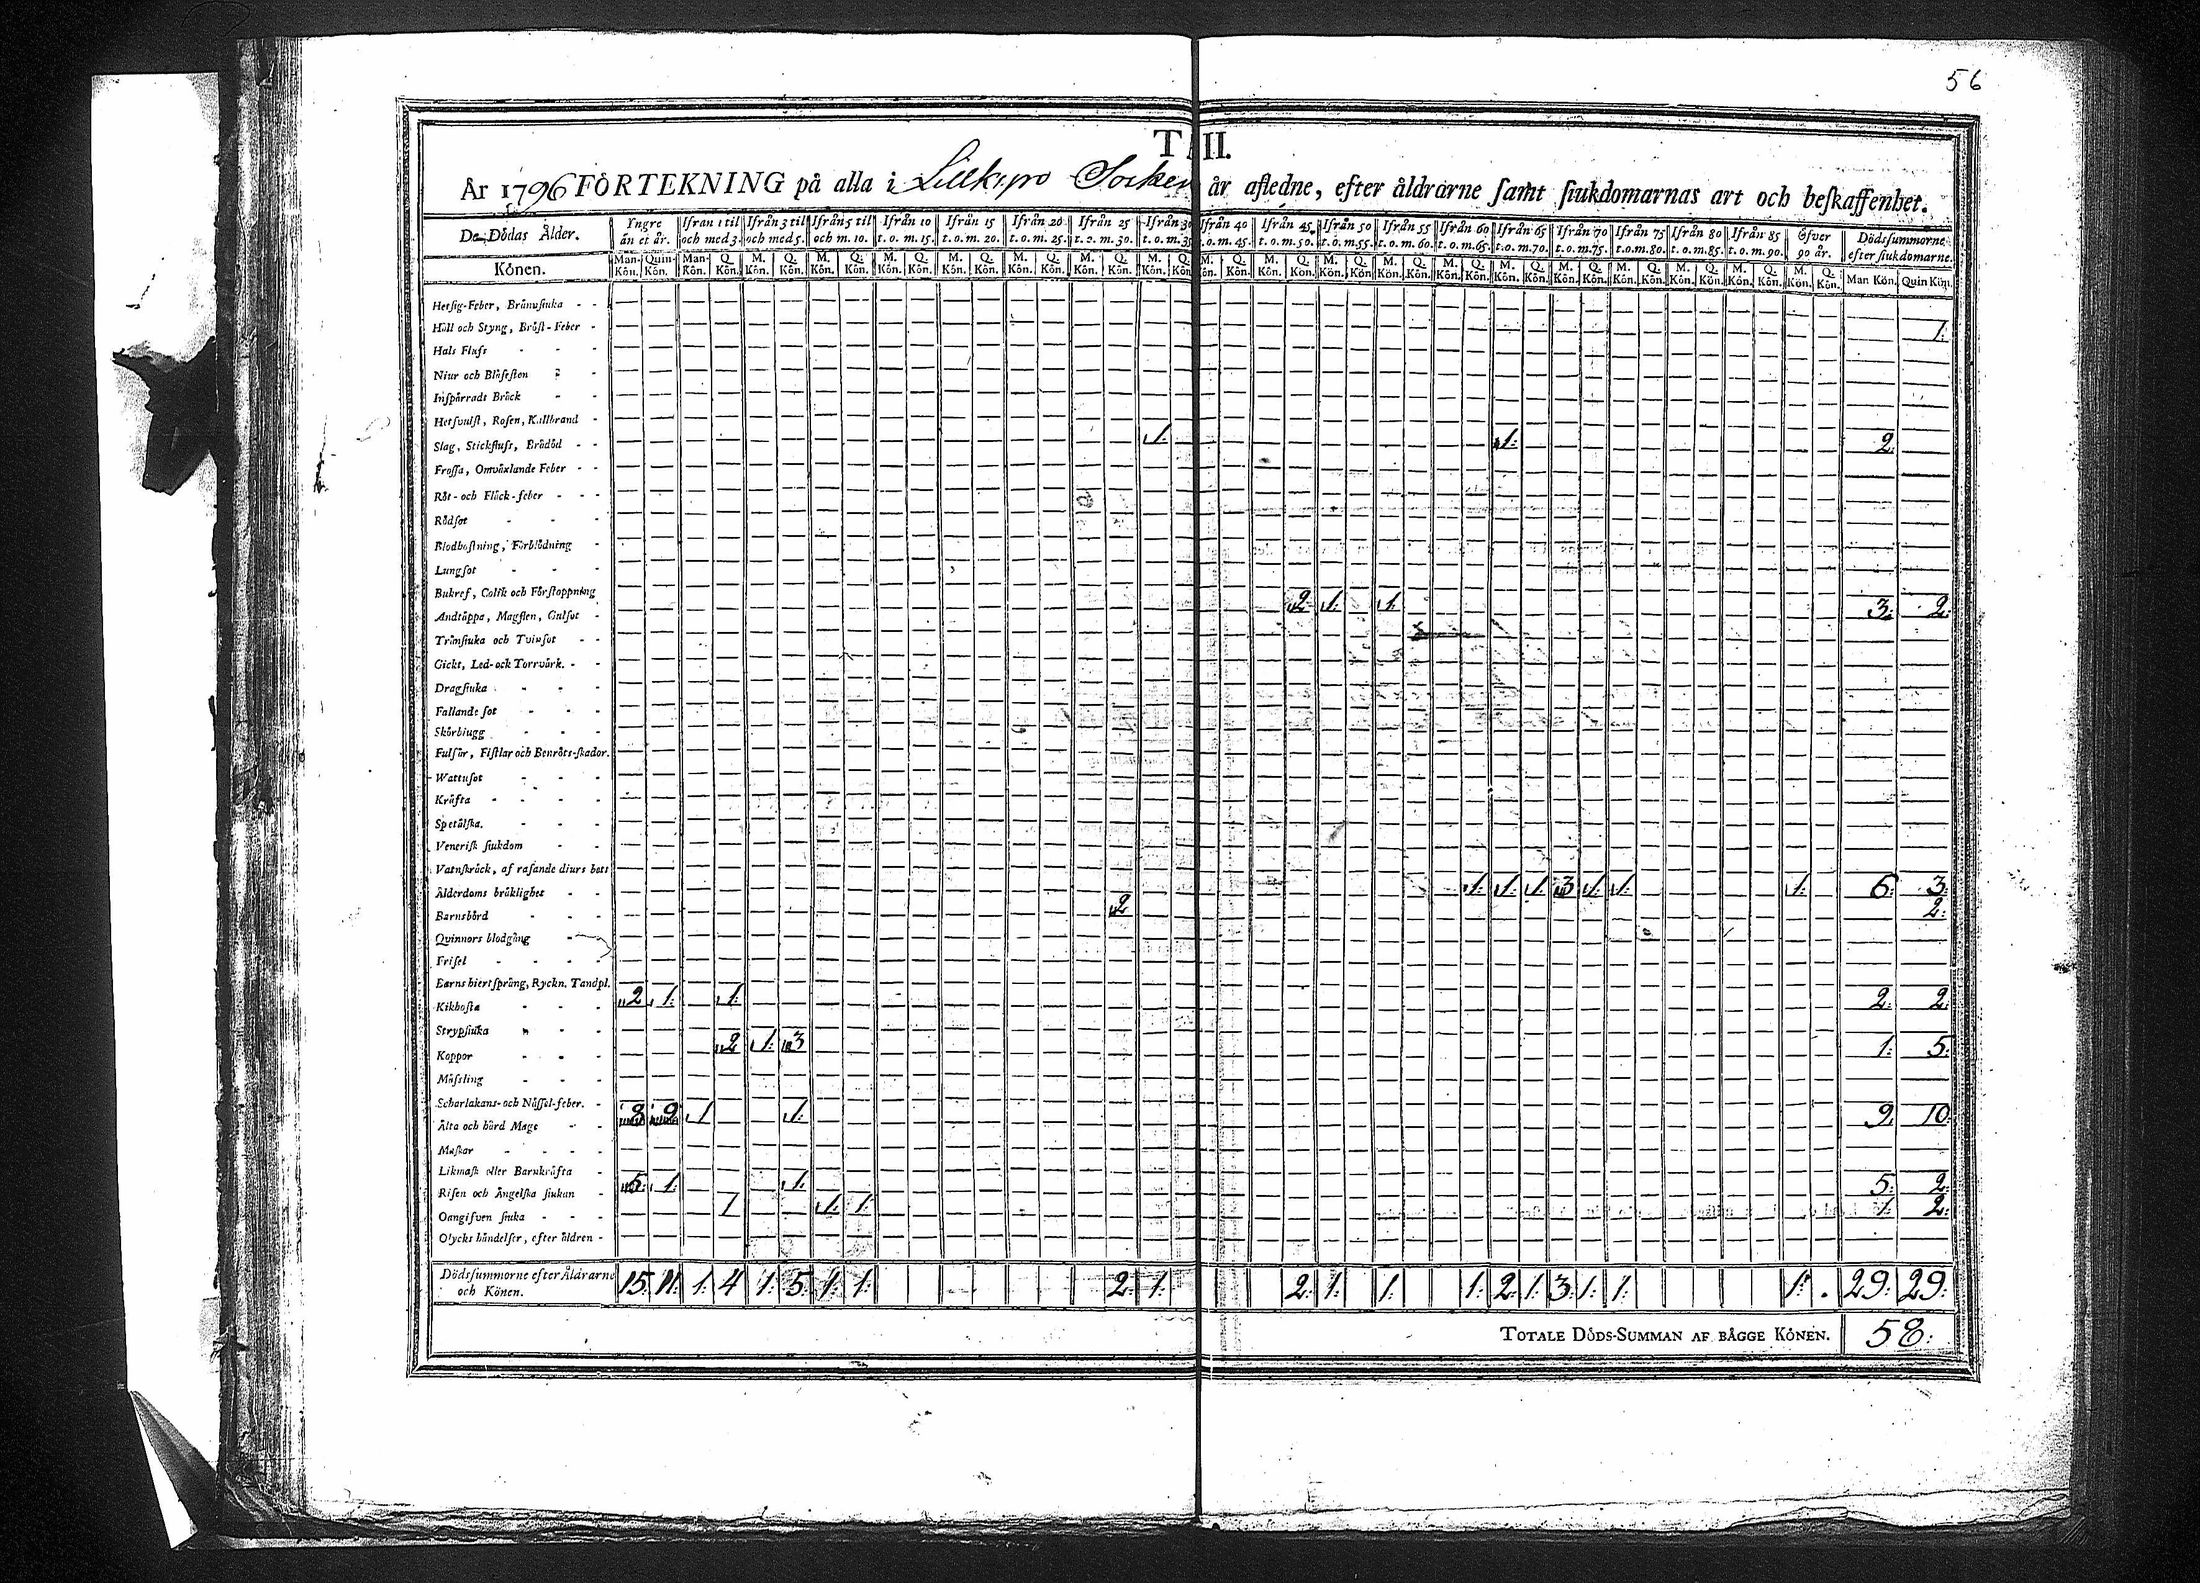 56
TAB II.
År 1796 FÖRTEKNING på alla i Lillkyro Socken år afledne, efter åldrarne samt siukdomarnas art och beskaffenhet.
De Dödas Ålder. Yngre än et år. Ifrån 1 til och med 3. Ifrån 3 til och med 5. Ifrån 5 til och m. 10. Ifrån 10 t.o.m. 15. Ifrån 15 t.o.m. 20. Ifrån 20 t.o.m. 25. Ifrån 25 t.o.m. 30. Ifrån 30 t.o.m. 35. Ifrån 40 t.o.m. 45. Ifrån 45 t.o.m. 50. Ifrån 50 t.o.m. 55. Ifrån 55 t.o.m. 60. Ifrån 60 t.o.m. 65. Ifrån 65 t.o.m. 70. Ifrån 70 t.o.m. 75. Ifrån 75 t.o.m. 80. Ifrån 80 t.o.m. 85. Ifrån 85 t.o.m. 90. Öfver 90 år. Dödssummorne efter siukdomarne.
Könen. Man-Kön. Quin-Kön. Man-Kön. Q. Kön. M. Kön. Q. Kön. M. Kön. Q. Kön. M. Kön. Q. Kön. M. Kön. Q. Kön. M. Kön. Q. Kön. M. Kön. Q. Kön. M. Kön. Q. Kön. M. Kön. Q. Kön. M. Kön. Q. Kön. M. Kön. Q. Kön. M. Kön. Q. Kön. M. Kön. Q. Kön. M. Kön. Q. Kön. M. Kön. Q. Kön. M. Kön. Q. Kön. M. Kön. Q. Kön. M. Kön. Q. Kön. M. Kön. Q. Kön. Man Kön. Quin Kön.
Hetsig-Feber, Brännsiuka
Håll och Styng, Bröst-Feber 1:
Hals Fluss
Niur och Blåsesten
Inspärradt Bråck
Hetsvulst, Rosen, Kallbrand
Slag, Stickfluss, Brådöd 1: 1: 2:
Frossa, Omväxlande Feber
Röt- och Fläck-feber
Rödsot
Blodhostning, Förblödning
Lungsot
Bukref, Colik och Förstoppning
Andtäppa, Magsten, Gulsot 2: 1: 1. 3: 2:
Trånsiuka och Tvinsot
Gickt, Led- och Torrvärk.
Dragsiuka
Fallande sot
Skörbiugg
Fulsår, Fistlar och Benröts-skador.
Wattusot
Kräfta
Spetälska.
Venerisk siukdom
Vatnskräck, af rasande diurs bett
Ålderdoms bräklighet 1: 1: 1: 3 1: 1: 1: 6: 3:
Barnsbörd 2 2:
Qvinnors blodgång
Frisel
Barns hiertsprång, Ryckn. Tandpl.
Kikhosta 2 1: 1: 2: 2:
Strypsiuka
Koppor 2 1: 3 1: 5:
Mässling
Scharlakans- och Nässel-feber.
Älta och hård Mage 8 9 1 1: 9: 10:
Maskar
Likmask eller Barnkräfta
Risen och Ängelska siukan 5: 1: 1: 5: 2:
Oangifven siuka 1 1: 1: 1: 2:
Olycks händelser, efter åldren
Dödssummorne efter Åldrarne och Könen. 15: 11: 1: 4 1: 5: 1: 1: 2: 1: 2: 1: 1: 1: 2: 1: 3: 1: 1: 1: 29: 29:
TOTALE DÖDS-SUMMAN AF BÄGGE KÖNEN. 58: